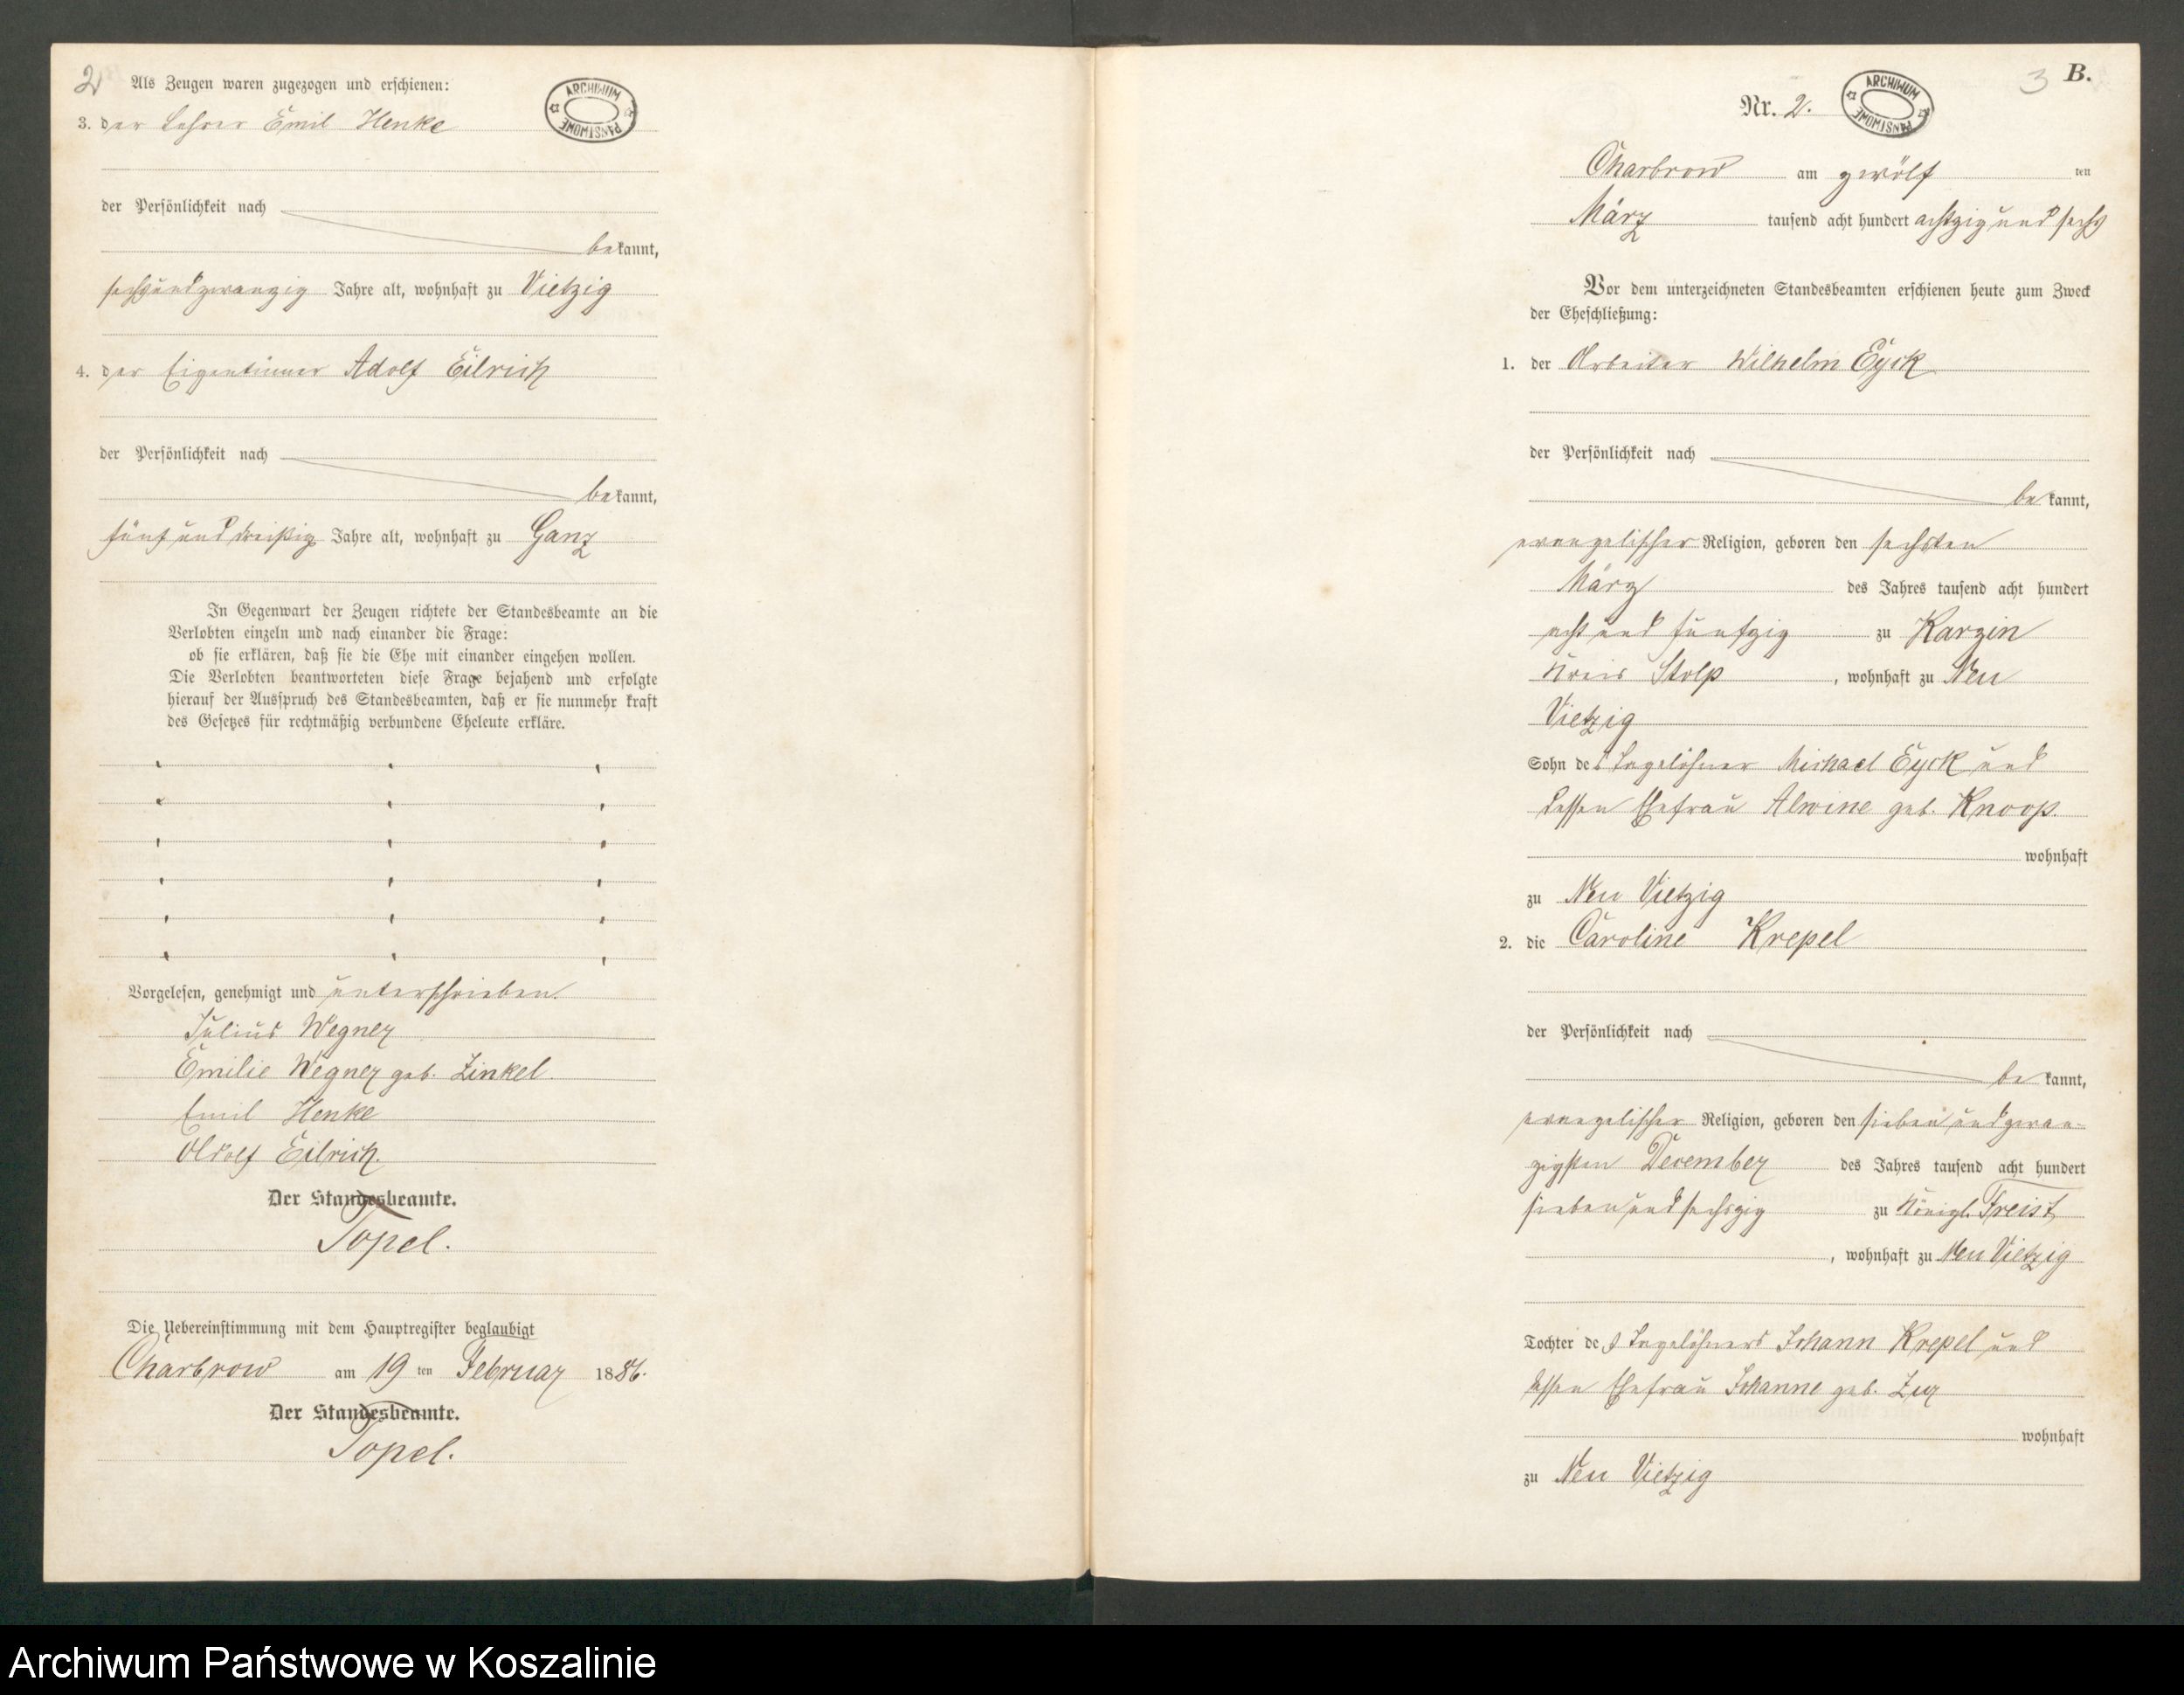 2
Als Zeugen waren zugezogen und erschienen:
ARCHIWUM PAŃSTWOWE
3. der Lehrer Emil Henke
der Persönlichkeit nach
bekannt,
sechsundzwanzig Jahre alt, wohnhaft zu Vietzig
4. der Eigentümer Adolf Eilrich
der Persönlichkeit nach
bekannt,
fünf und dreißig Jahre alt, wohnhaft zu Ganz
In Gegenwart der Zeugen richtete der Standesbeamte an die
Verlobten einzeln und nach einander die Frage:
ob sie erklären, daß sie die Ehe mit einander eingehen wollen.
Die Verlobten beantworteten diese Frage bejahend und erfolgte
hierauf der Ausspruch des Standesbeamten, daß er sie nunmehr kraft
des Gesetzes für rechtmäßig verbundene Eheleute erkläre.
Vorgelesen, genehmigt und unterschrieben.
Julius Wegner
Emilie Wegner geb. Zinkel.
Emil Henke
Adolf Eilrich.
Der Standesbeamte.
Topel.
Die Uebereinstimmung mit dem Hauptregister beglaubigt
Charbrow am 19 ten Februar 1886.
Der Standesbeamte.
Topel.
3 B.
Nr. 2.
ARCHIWUM PAŃSTWOWE
Charbrow am zwölf ten
März tausend acht hundert achtzig und sechs
Vor dem unterzeichneten Standesbeamten erschienen heute zum Zweck
der Eheschließung:
1. der Arbeiter Wilhelm Eyck
der Persönlichkeit nach
bekannt,
evangelischer Religion, geboren den sechsten
März des Jahres tausend acht hundert
acht und fünfzig zu Karzin
Kreis Stolp, wohnhaft zu Neu
Vietzig
Sohn des Tagelöhner Michael Eyck und
dessen Ehefrau Alwine geb. Knoop.
wohnhaft
zu Neu Vietzig
2. die Caroline Krepel
der Persönlichkeit nach
bekannt,
evangelischer Religion, geboren den sieben und zwan-
zigsten December des Jahres tausend acht hundert
sieben und sechszig zu Königl. Freist
, wohnhaft zu Neu Vietzig
Tochter des Tagelöhners Johann Krepel und
dessen Ehefrau Johanne geb.
wohnhaft
zu Neu Vietzig
Archiwum Państwowe w Koszalinie